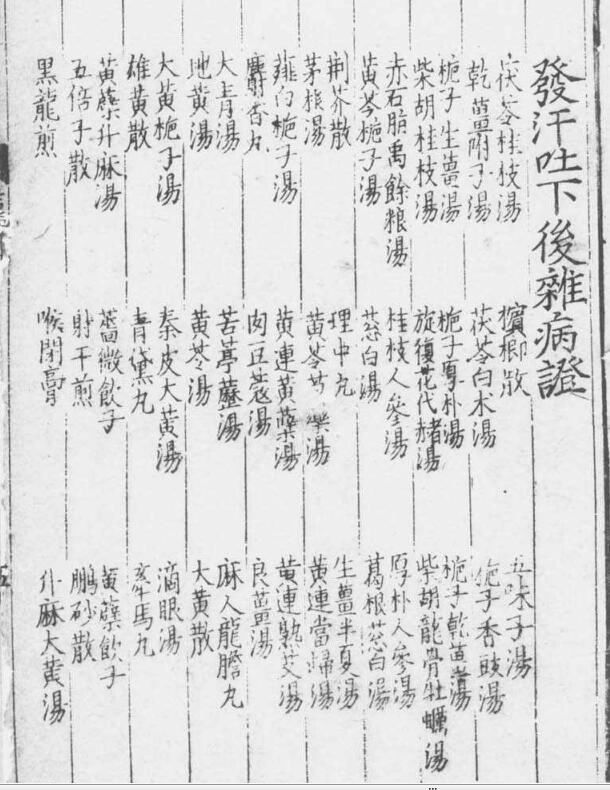 發汗吐下後雜病證
茯苓桂枝湯 檳榔散 五味子湯
乾薑附子湯 茯苓白木湯 梔子香豉湯
梔子生薑湯 梔子厚朴湯 梔子乾薑湯
柴胡桂枝湯 旋復花代赭湯 柴胡龍骨牡蠣湯
赤石脂禹餘粮湯 桂枝人參湯 厚朴人參湯
黃芩梔子湯 葱白湯 葛根葱白湯
荆芥散 理中丸 生薑半夏湯
茅根湯 黃芩芍藥湯 黃連當歸湯
薤白梔子湯 黃連黃蘗湯 黃連熟艾湯
麝香丸 肉豆蔻湯 良薑湯
大青湯 苦葶藶湯 麻人龍膽丸
地黃湯 黃芩湯 大黃散
大黃梔子湯 秦皮大黃湯 滴眼湯
雄黃散 青黛丸 馬丸
黃蘗升麻湯 薔薇飲子 黃蘗飲子
五倍子散 射干煎 鵬砂散
黑龍煎 喉閉膏 升麻大黃湯
五